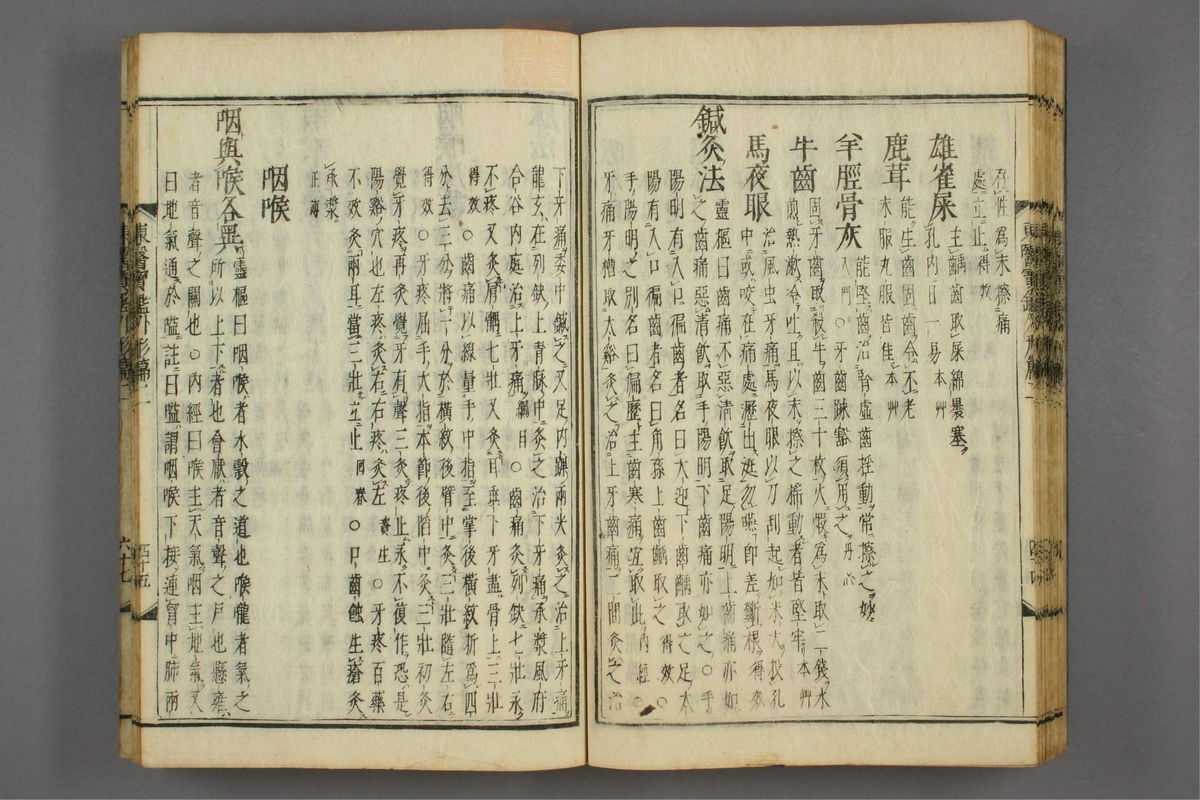 存性爲末擦痛
處立止得效
雄雀屎主齲齒取屎綿裹塞
孔內日一易本草
鹿茸能生齒固齒令不老
末服丸服皆佳本草
羊脛骨灰能堅齒治腎虛齒挃動常擦之妙
入門○牙齒踈豁須用之丹心
牛齒固牙齒取牛齒三十枚火煆爲末取二錢水
煎熱漱令吐且以末擦之搖動者皆堅牢本草
馬夜眼治風虫牙痛馬夜眼以刀刮起如米大投孔
中或咬在痛處瀝出涎勿嚥即差斷根得效
鍼灸法靈樞曰齒痛不惡清飮取足陽明上齒痛亦如
之齒痛惡清飮取手陽明下齒痛亦如之○手
陽明有入頄徧齒者名曰大迎下齒齲取之足太
陽有入頄徧齒者名曰角孫上齒齲取之得效○
手陽明之別名曰偏歷主齒寒痛宜取此內經○
牙痛牙槽取太谿灸之治上牙齒痛二間灸之治
下牙痛委中鍼之又足內踝兩尖灸之治上牙痛
龍玄在列缺上青脉中灸之治下牙痛承漿風府
合谷內庭治上牙痛綱目○齒痛灸列缺七壯永
不疼又灸肩髃七壯又灸耳垂下牙盡骨上三壯
得效○齒痛以線量手中指至掌後橫紋折爲四
分去三分將一分於橫紋後臂中灸三壯隨左右
得效○牙疼屈手大指本節後陷中灸三壯初灸
覺牙疼再灸覺牙有聲三灸疼止永不復作恐是
陽谿穴也左疼灸右右疼灸左資生○牙疼百藥
不效灸兩耳當三壯立止回春○口齒蝕生瘡灸
承漿
咽喉
咽與喉各異靈樞曰咽喉者水穀之道也喉嚨者氣之
所以上下者也會厭者音聲之戶也懸雍
者音聲之關也○內經曰喉主天氣咽主地氣又
曰地氣通於嗌註曰嗌謂咽喉下接連胷中肺兩
東醫寶鑑外形篇二
四十五